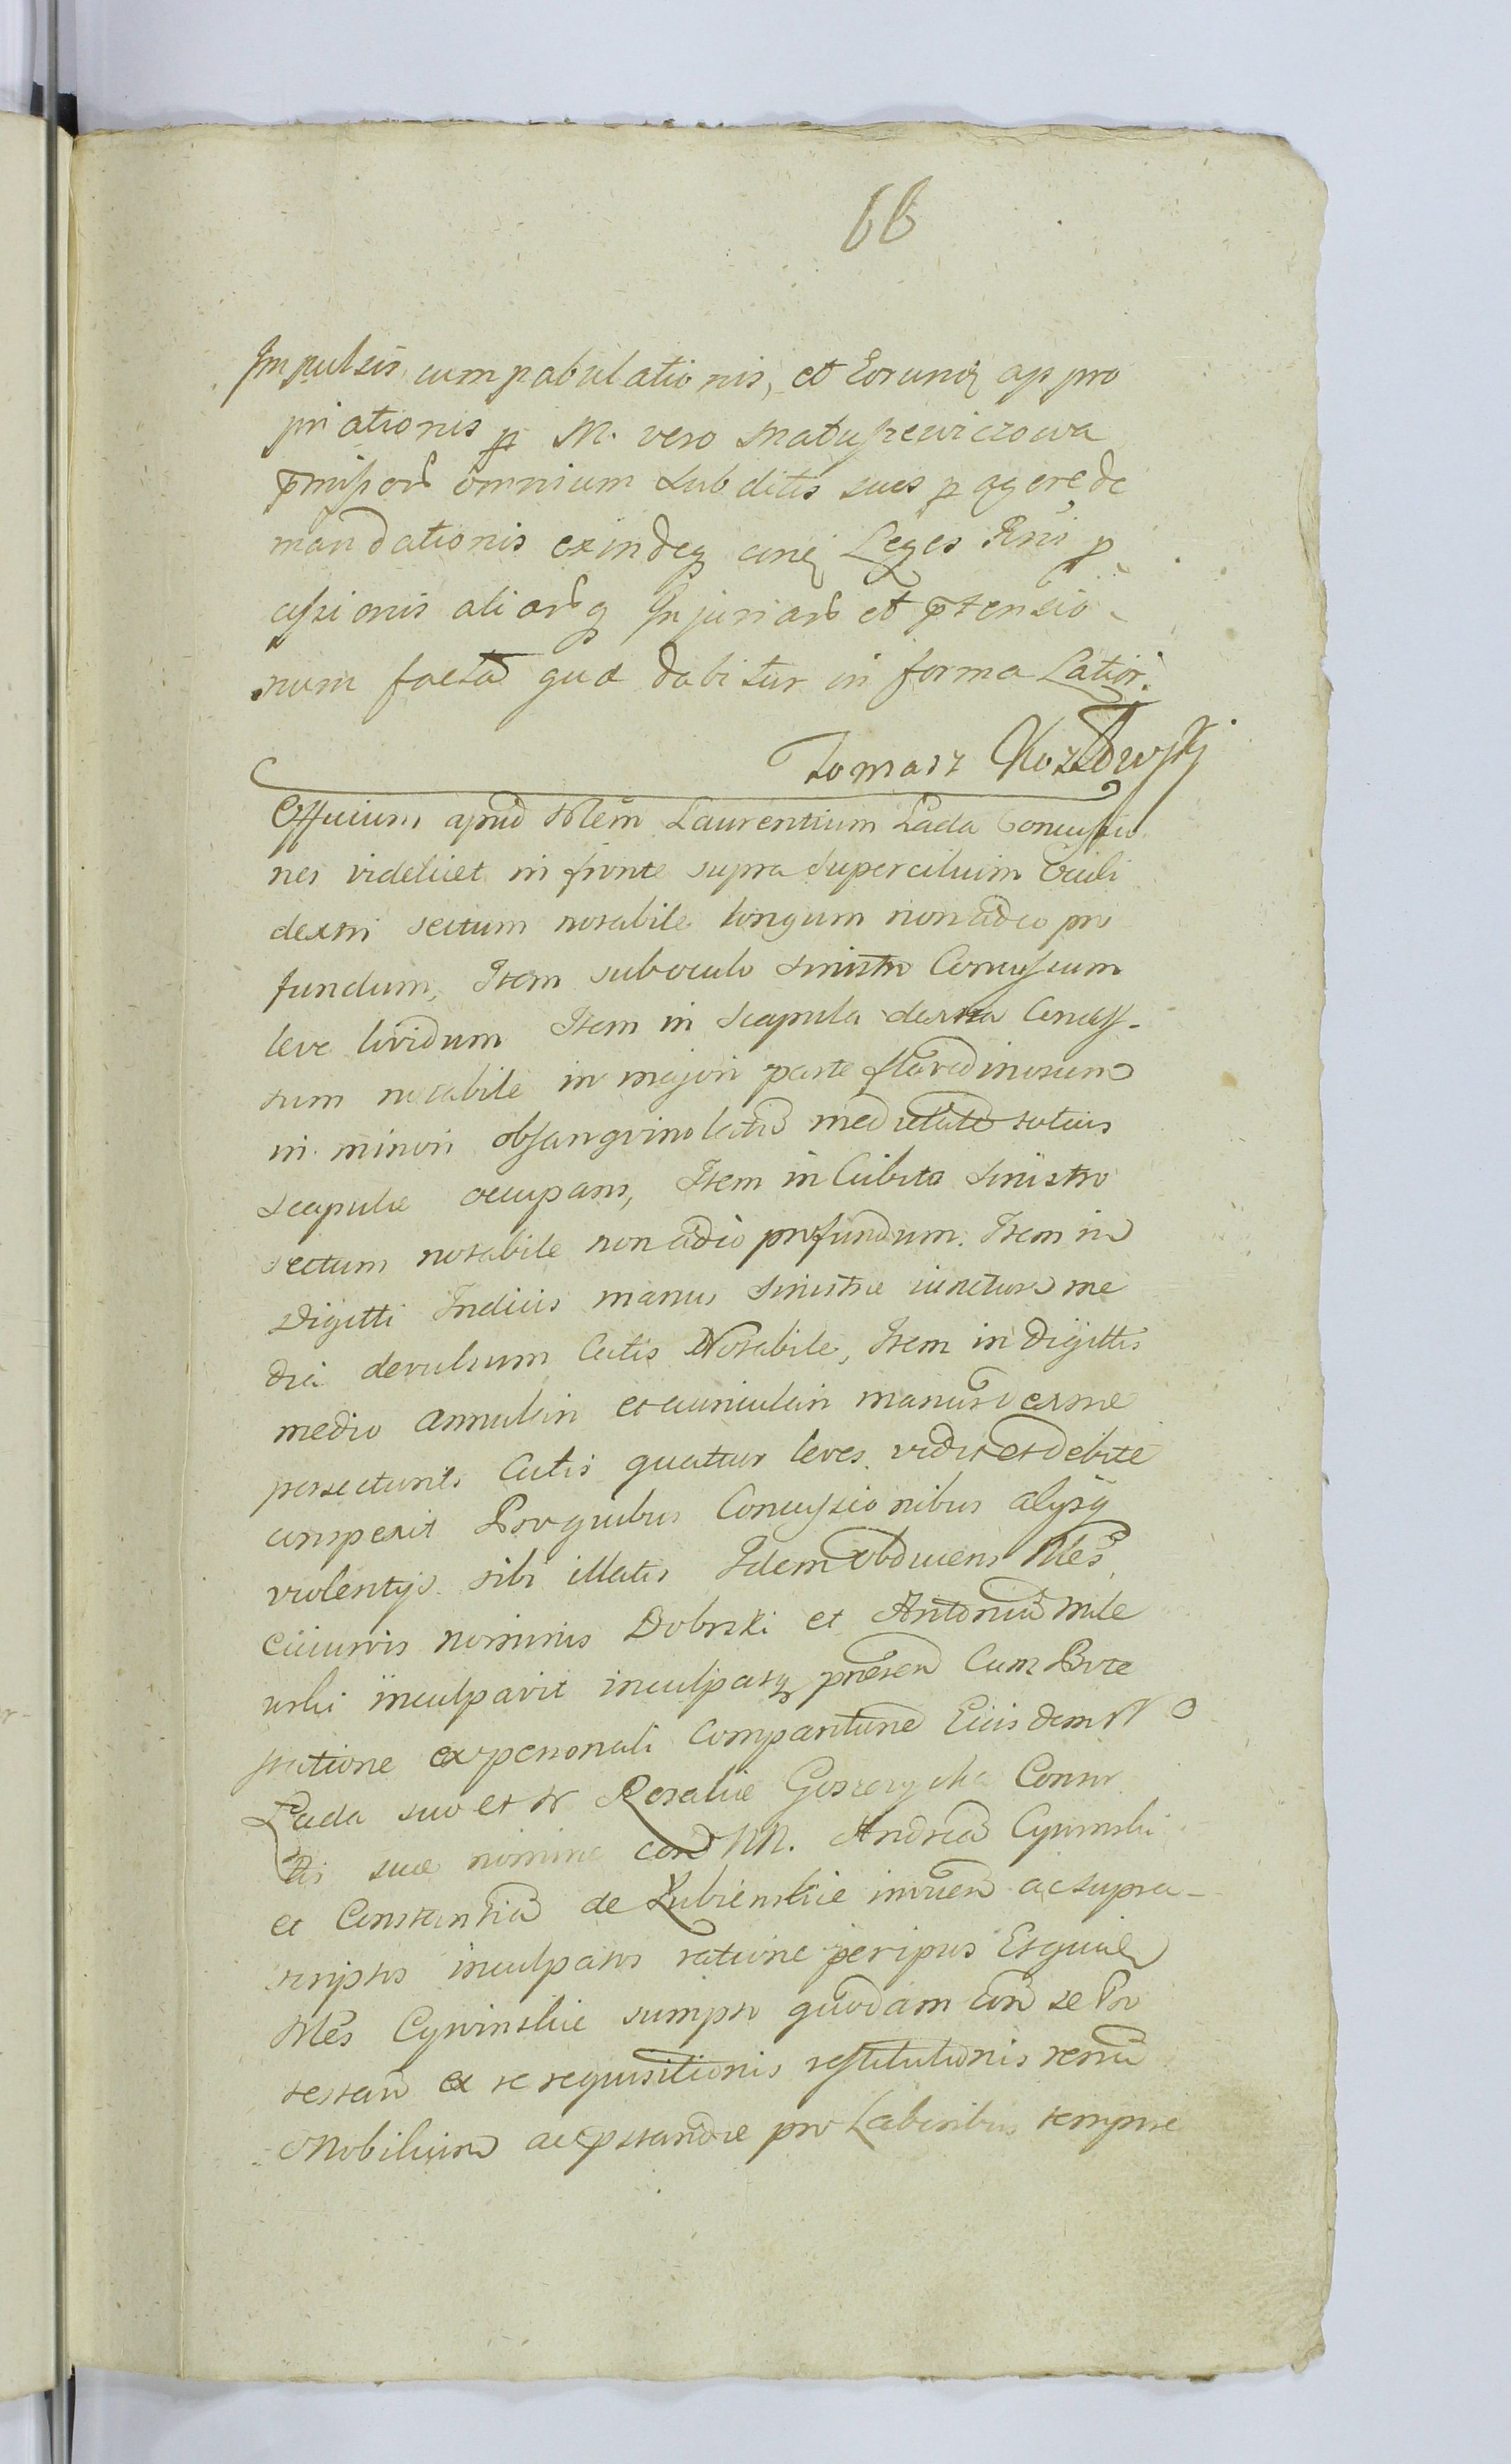 66
Impulsis cumpabulationis, et Eorundq appro
priationis p M. vero Matuszewiczowa
p̄missorū omnium subditis suis p agere de
mandationis exindeq Leges Rni p
cussionis aliarūq Injuriarū et p̄tensio
num factā quæ dabitur in forma Latiori.
Tomasz Kozłowski
Officium apud Nlem Laurentium Łada Concussio
nes videlicet in fronte supra supercilium Oculi
dextri sectum notabile longum non adeo pro
fundum, Item sub oculo sinistro Concussum
leve lividum Item in Scapula dextra Concus-
sum notabile in majori parte flavedinosum
in minori obsangvinolatū medietatē totius
scapulæ occupans, Item in Cubito Sinistro
sectum notabile non adeo profundum. Item in
Digitti Indicis manus Sinistræ iuncturā me
dia devulsum Cutis Notabile, Item in digittis
medio annulari et auriculari manus dextræ
persecturas Cutis quattuor leves vidit et debite
conspexit Pro quibus Concussionibus alijsq
violentijs sibi illatis Idem obducens Nles
cuiusvis nominis Dobrski et Antoniū Mile
wski inculpavit inculpatq præsen Cum Prote
statione ex personali Comparitione Eiusdem N
Łada suo et N Rosaliæ Conso
tis suæ nomine con NN. Andreā Cywinski
et Constantiā de Łubienskie ac supra
scriptos inculpatos ratione peripsus
Nles Cywinskie sumpto quodam con se Pro
testan ex re requisitionis restitutionis rerum
Mobilium acceptandæ pro Laboribus tempore